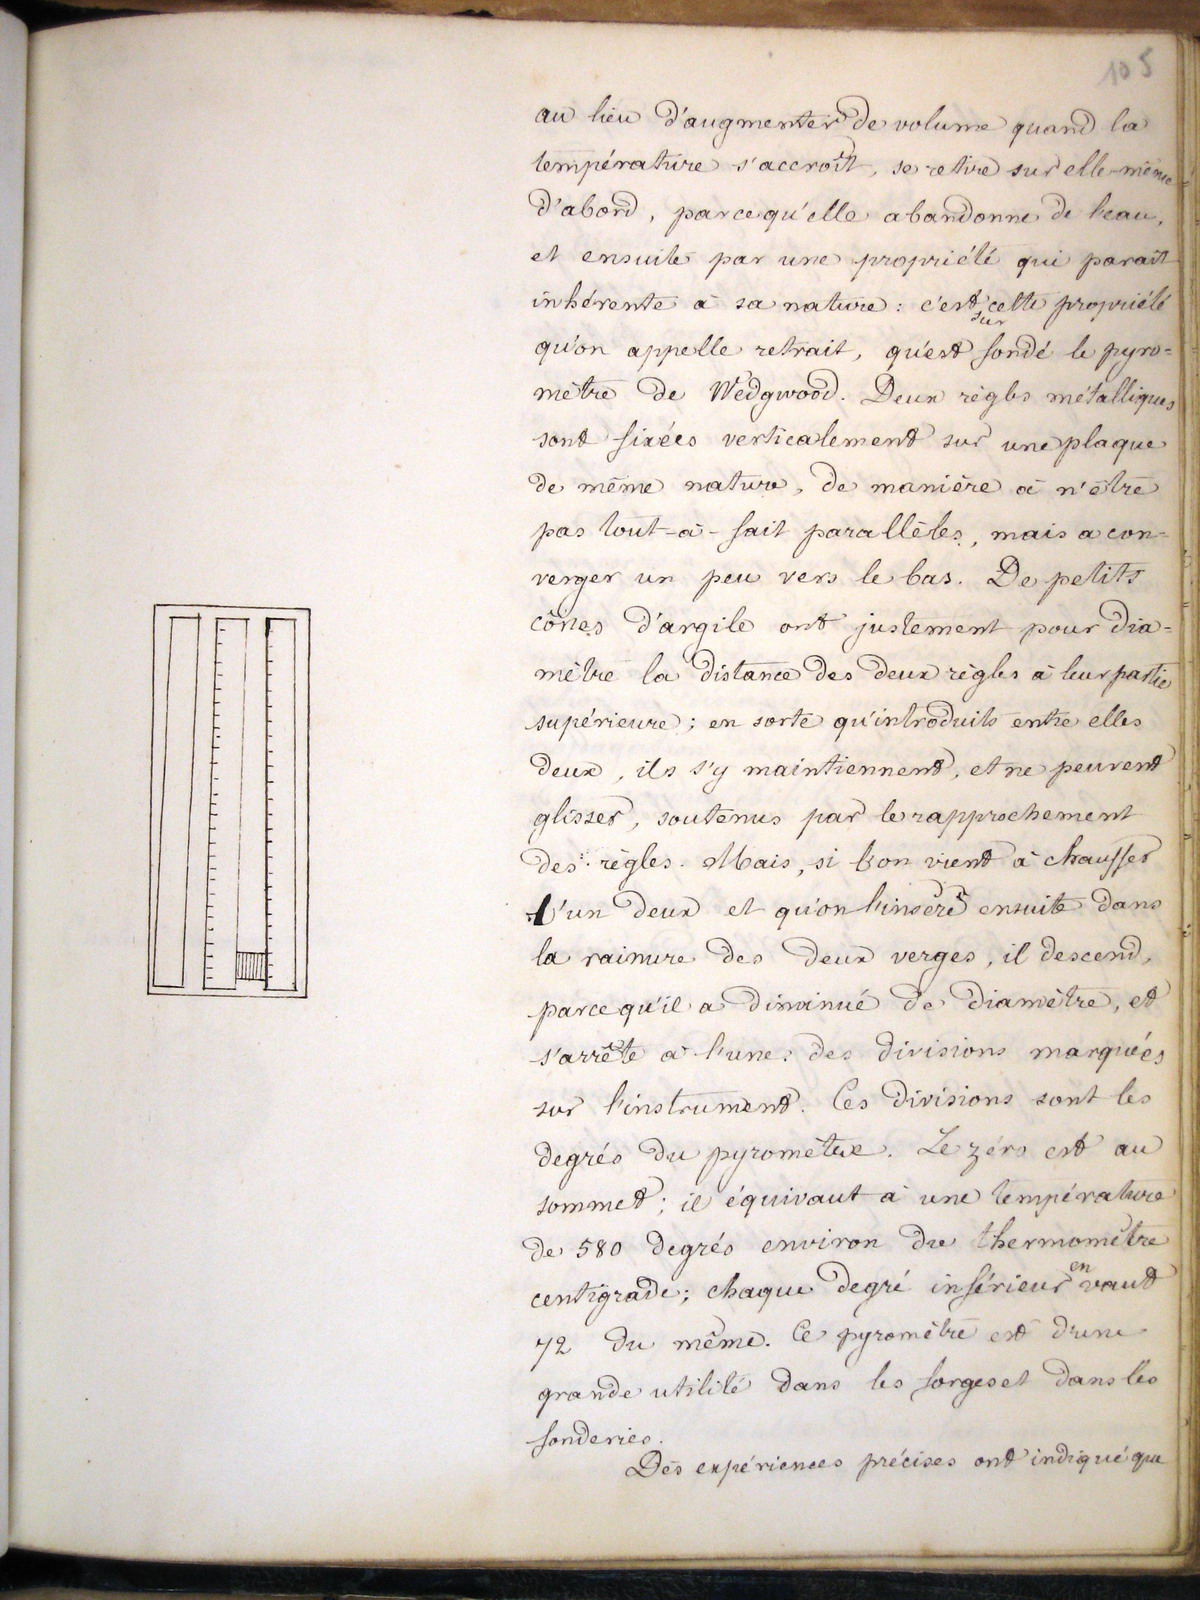 105
au lieu d'augmenter de volume quand la
température s'accroît, se retire sur elle-même
d'abord, parcequ'elle abandonne de l'eau,
et ensuite par une propriété qui parait
inhérente à sa nature : c'est sur cette propriété
qu'on appelle retrait, qu'est fondé le pyro=
mètre de Wedgwood. Deux règles métalliques
sont fixées verticalement sur une plaque
de même nature, de manière à n'être
pas tout-à-fait parallèles, mais a con=
verger un peu vers le bas. De petits
cônes d'argile ont justement pour dia=
mètre la distance des deux règles à leur partie
supérieure ; en sorte qu'introduits entre elles
deux, ils s'y maintiennent, et ne peuvent
glisser, soutenus par le rapprochement
des règles. Mais, si l'on vient à chauffer
l'un deux et qu'on l'insère ensuite dans
la rainure des deux verges, il descend,
parcequ'il a diminué de diamètre, et
s'arrête à l'une des divisions marquées
sur l'instrument. Ces divisions sont les
degrés du pyromètre. Le zéro est au
sommet ; il équivaut à une température
de 580 degrés environ du thermomètre
centigrade ; chaque degré inférieur en vaut
72 du même. Ce pyromètre est d'une
grande utilité dans les forges et dans les
fonderies.
Des expériences précises ont indiqué que